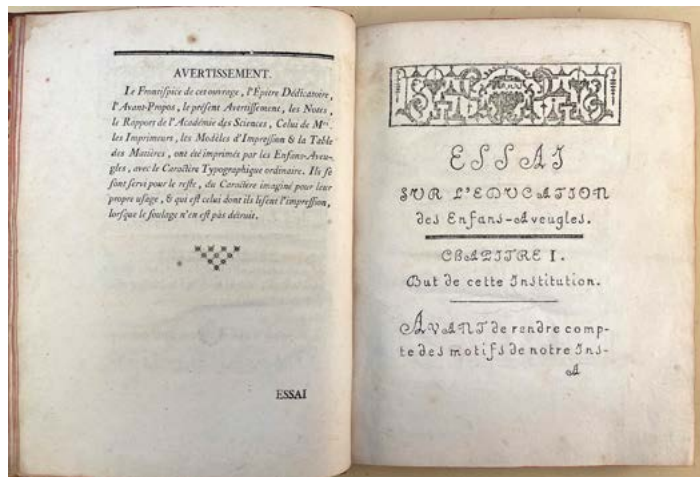 AVERTISSEMENT.
Le Frontispice de cet ouvrage, l'Epitre Dédicatoire,
l'Avant-Propos, le présent Avertissement, les Notes,
le Rapport de l'Académie des Sciences, Celui de Mrs.
les Imprimeurs, les Modèles d'Impression & la Table
des Matières, ont été imprimés par les Enfans-Aveu-
gles, avec le Caractère Typographique ordinaire. Ils se
sont servi pour le reste, du Caractère imaginé pour leur
propre usage, & qui est celui dont ils lisent l'impression,
lorsque le foulage n'en est pas détruit.
ESSAI
ESSAI
SUR L'EDUCATION
des Enfans-Aveugles.
CHAPITRE I.
But de cette Institution.
AVANT de rendre comp-
te des motifs de notre Ins-
A